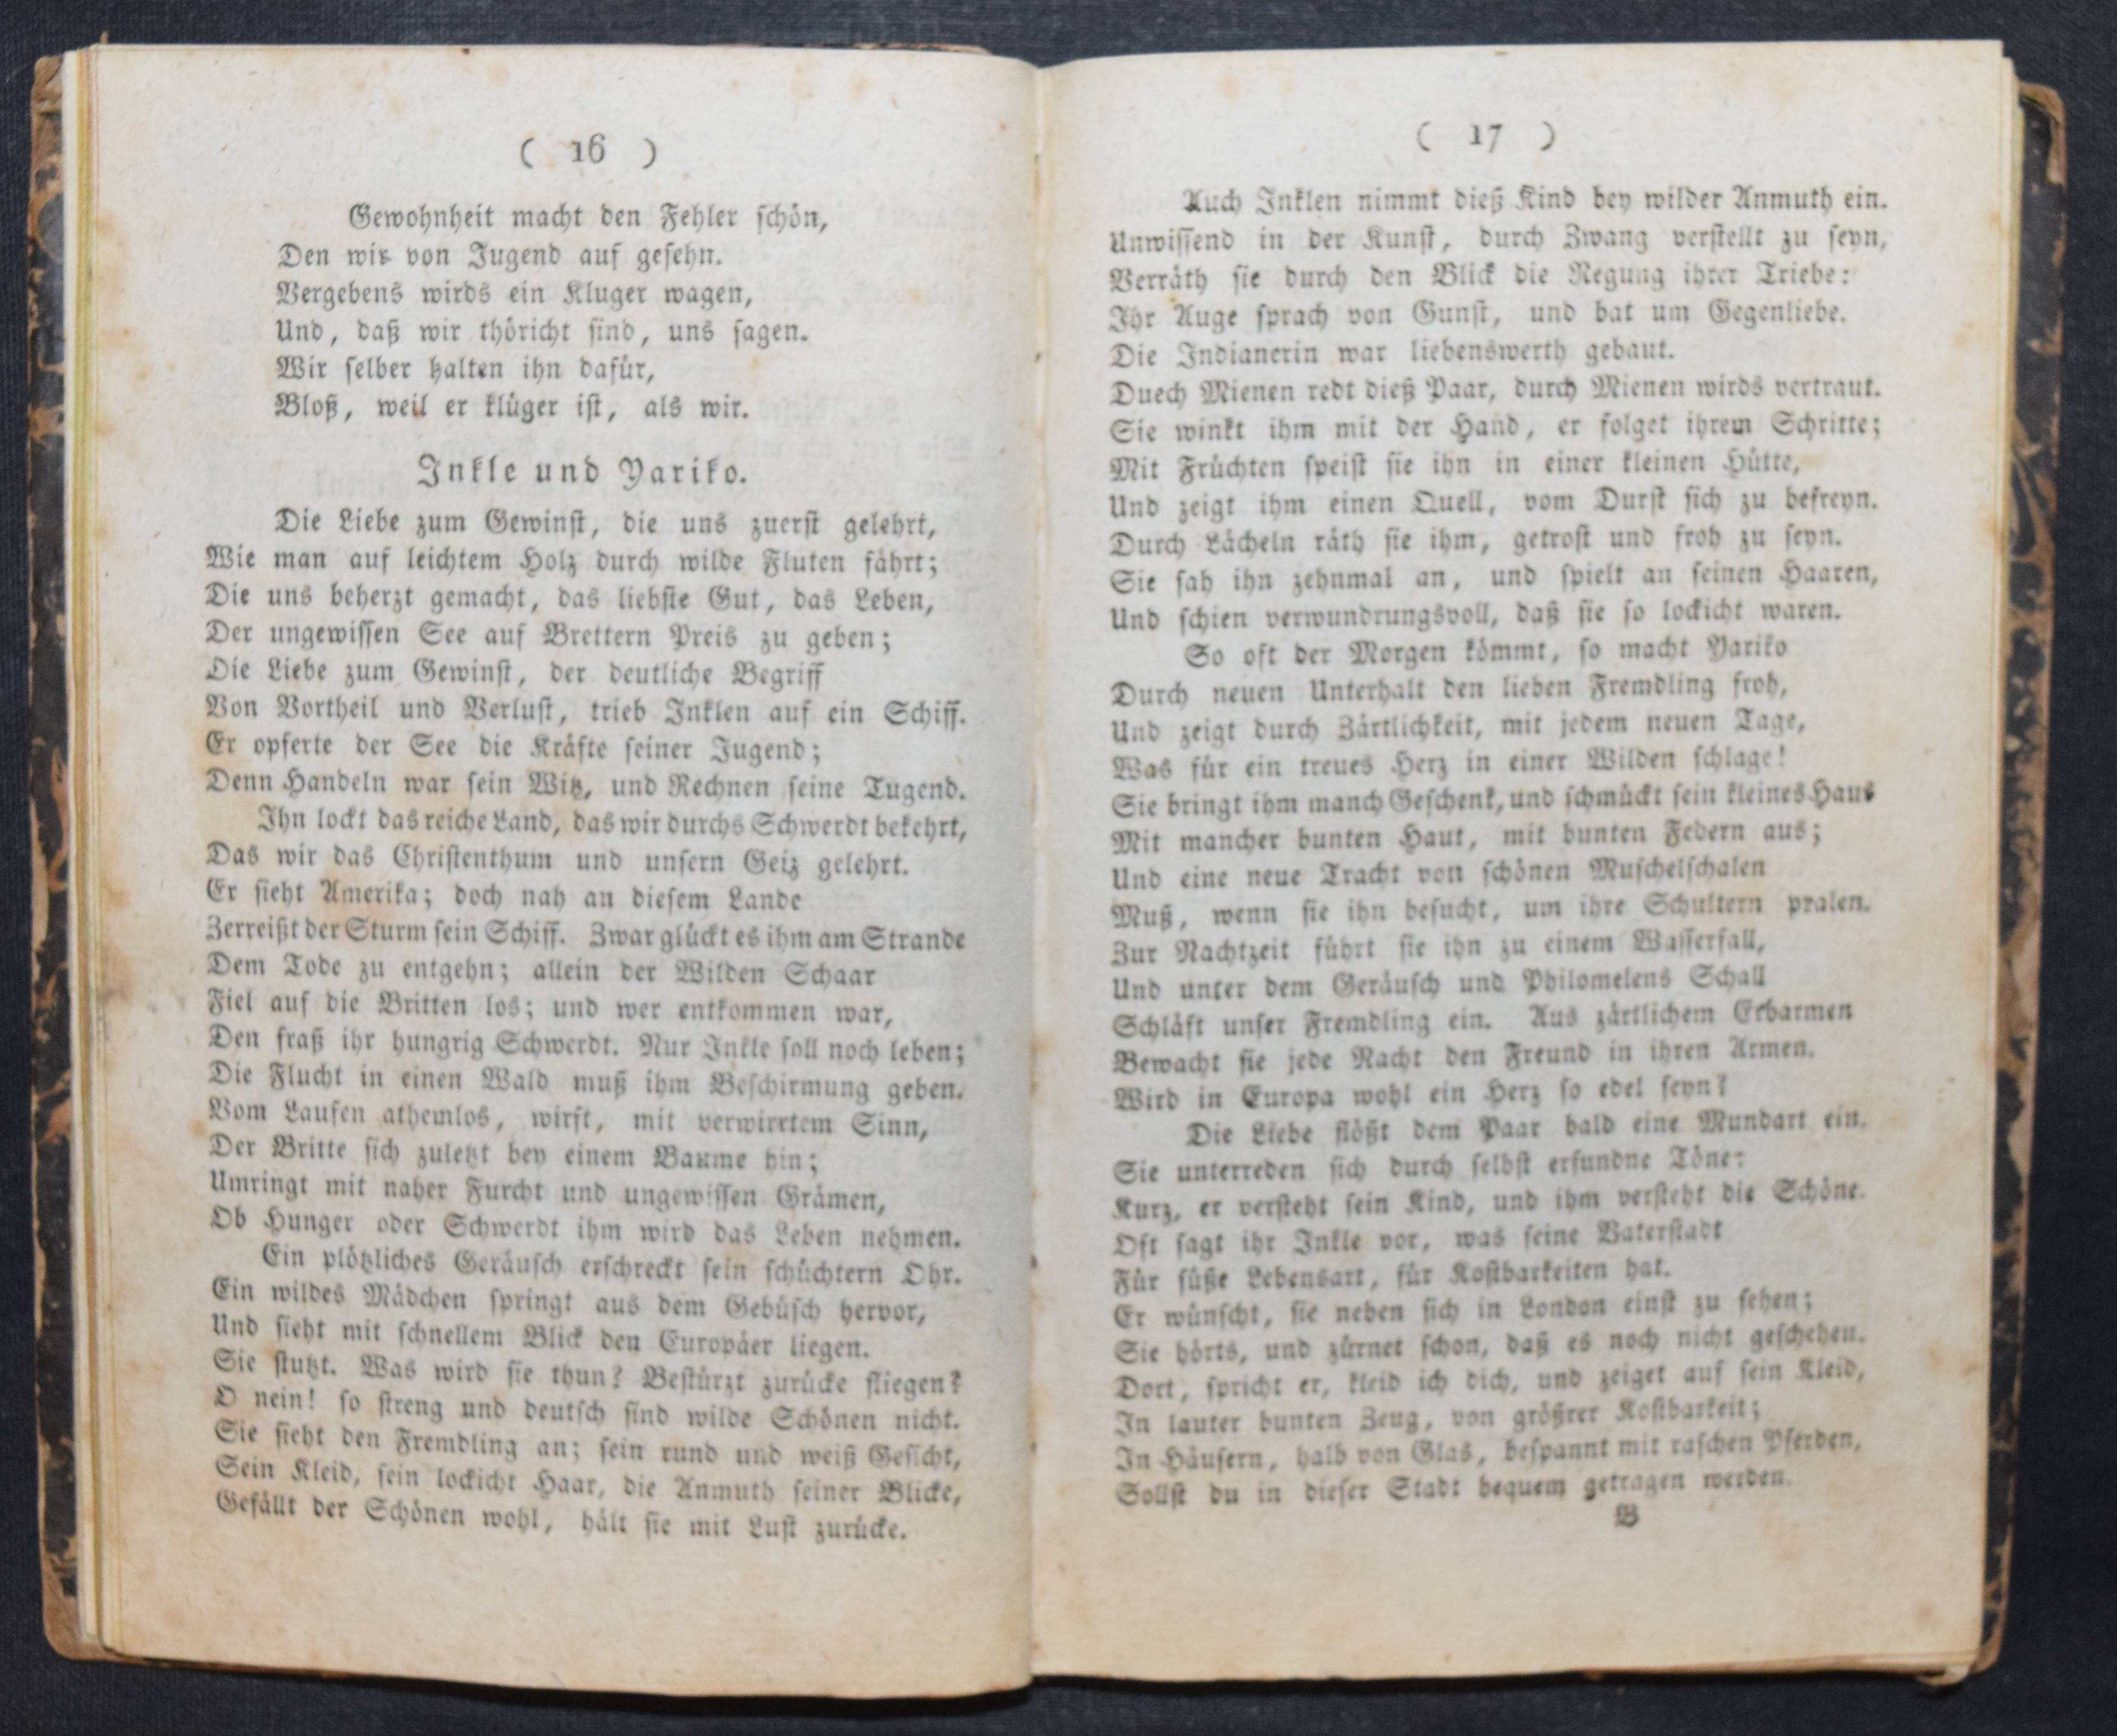 ( 16 )
Gewohnheit macht den Fehler ſchön,
Den wir von Jugend auf geſehn.
Vergebens wirds ein Kluger wagen,
Und, daß wir thöricht ſind, uns ſagen.
Wir ſelber halten ihn dafür,
Bloß, weil er klüger iſt, als wir.
Inkle und Yariko.
Die Liebe zum Gewinſt, die uns zuerſt gelehrt,
Wie man auf leichtem Holz durch wilde Fluten fährt;
Die uns beherzt gemacht, das liebſte Gut, das Leben,
Der ungewiſſen See auf Brettern Preis zu geben;
Die Liebe zum Gewinſt, der deutliche Begriff
Von Vortheil und Verluſt, trieb Inklen auf ein Schiff.
Er opferte der See die Kräfte ſeiner Jugend;
Denn Handeln war ſein Witz, und Rechnen ſeine Tugend.
Ihn lockt das reiche Land, das wir durchs Schwerdt bekehrt,
Das wir das Chriſtenthum und unſern Geiz gelehrt.
Er ſieht Amerika; doch nah an dieſem Lande
Zerreißt der Sturm ſein Schiff. Zwar glückt es ihm am Strande
Dem Tode zu entgehn; allein der Wilden Schaar
Fiel auf die Britten los; und wer entkommen war,
Den fraß ihr hungrig Schwerdt. Nur Inkle ſoll noch leben;
Die Flucht in einen Wald muß ihm Beſchirmung geben.
Vom Laufen athemlos, wirft, mit verwirrtem Sinn,
Der Britte ſich zuletzt bey einem Baume hin;
Umringt mit naher Furcht und ungewiſſen Grämen,
Ob Hunger oder Schwerdt ihm wird das Leben nehmen.
Ein plötzliches Geräuſch erſchreckt ſein ſchüchtern Ohr.
Ein wildes Mädchen ſpringt aus dem Gebüſch hervor,
Und ſieht mit ſchnellem Blick den Europäer liegen.
Sie ſtutzt. Was wird ſie thun? Beſtürzt zurücke fliegen?
O nein! ſo ſtreng und deutſch ſind wilde Schönen nicht.
Sie ſieht den Fremdling an; ſein rund und weiß Geſicht,
Sein Kleid, ſein lockicht Haar, die Anmuth ſeiner Blicke,
Gefällt der Schönen wohl, hält ſie mit Luſt zurücke.
( 17 )
Auch Inklen nimmt dieß Kind bey wilder Anmuth ein.
Unwiſſend in der Kunſt, durch Zwang verſtellt zu ſeyn,
Verräth ſie durch den Blick die Regung ihrer Triebe:
Ihr Auge ſprach von Gunſt, und bat um Gegenliebe.
Die Indianerin war liebenswerth gebaut.
Duech Mienen redt dieß Paar, durch Mienen wirds vertraut.
Sie winkt ihm mit der Hand, er folget ihrem Schritte;
Mit Früchten ſpeiſt ſie ihn in einer kleinen Hütte,
Und zeigt ihm einen Quell, vom Durſt ſich zu befreyn.
Durch Lächeln räth ſie ihm, getroſt und froh zu ſeyn.
Sie ſah ihn zehnmal an, und ſpielt an ſeinen Haaren,
Und ſchien verwundrungsvoll, daß ſie ſo lockicht waren.
So oft der Morgen kömmt, ſo macht Yariko
Durch neuen Unterhalt den lieben Fremdling froh,
Und zeigt durch Zärtlichkeit, mit jedem neuen Tage,
Was für ein treues Herz in einer Wilden ſchlage!
Sie bringt ihm manch Geſchenk, und ſchmückt ſein kleines Haus
Mit mancher bunten Haut, mit bunten Federn aus;
Und eine neue Tracht von ſchönen Muſchelſchalen
Muß, wenn ſie ihn beſucht, um ihre Schultern pralen.
Zur Nachtzeit führt ſie ihn zu einem Waſſerfall,
Und unter dem Geräuſch und Philomelens Schall
Schläft unſer Fremdling ein. Aus zärtlichem Erbarmen
Bewacht ſie jede Nacht den Freund in ihren Armen.
Wird in Europa wohl ein Herz ſo edel ſeyn?
Die Liebe flößt dem Paar bald eine Mundart ein.
Sie unterreden ſich durch ſelbſt erfundne Töne:
Kurz, er verſteht ſein Kind, und ihm verſteht die Schöne.
Oft ſagt ihr Inkle vor, was ſeine Vaterſtadt
Für ſüße Lebensart, für Koſtbarkeiten hat.
Er wünſcht, ſie neben ſich in London einſt zu ſehen;
Sie hörts, und zürnet ſchon, daß es noch nicht geſchehen.
Dort, ſpricht er, kleid ich dich, und zeiget auf ſein Kleid,
In lauter bunten Zeug, von größrer Koſtbarkeit;
In Häuſern, halb von Glas, beſpannt mit raſchen Pferden,
Sollſt du in dieſer Stadt bequem getragen werden.
B